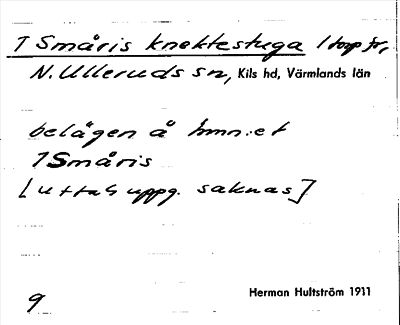 1 Småris knektestuga / torp fr,
N. Ulleruds sn, Kils hd, Värmlands län
belägen å hmn:et
1 Småris
[uttalsuppg. saknas]
9
Herman Hultström 1911